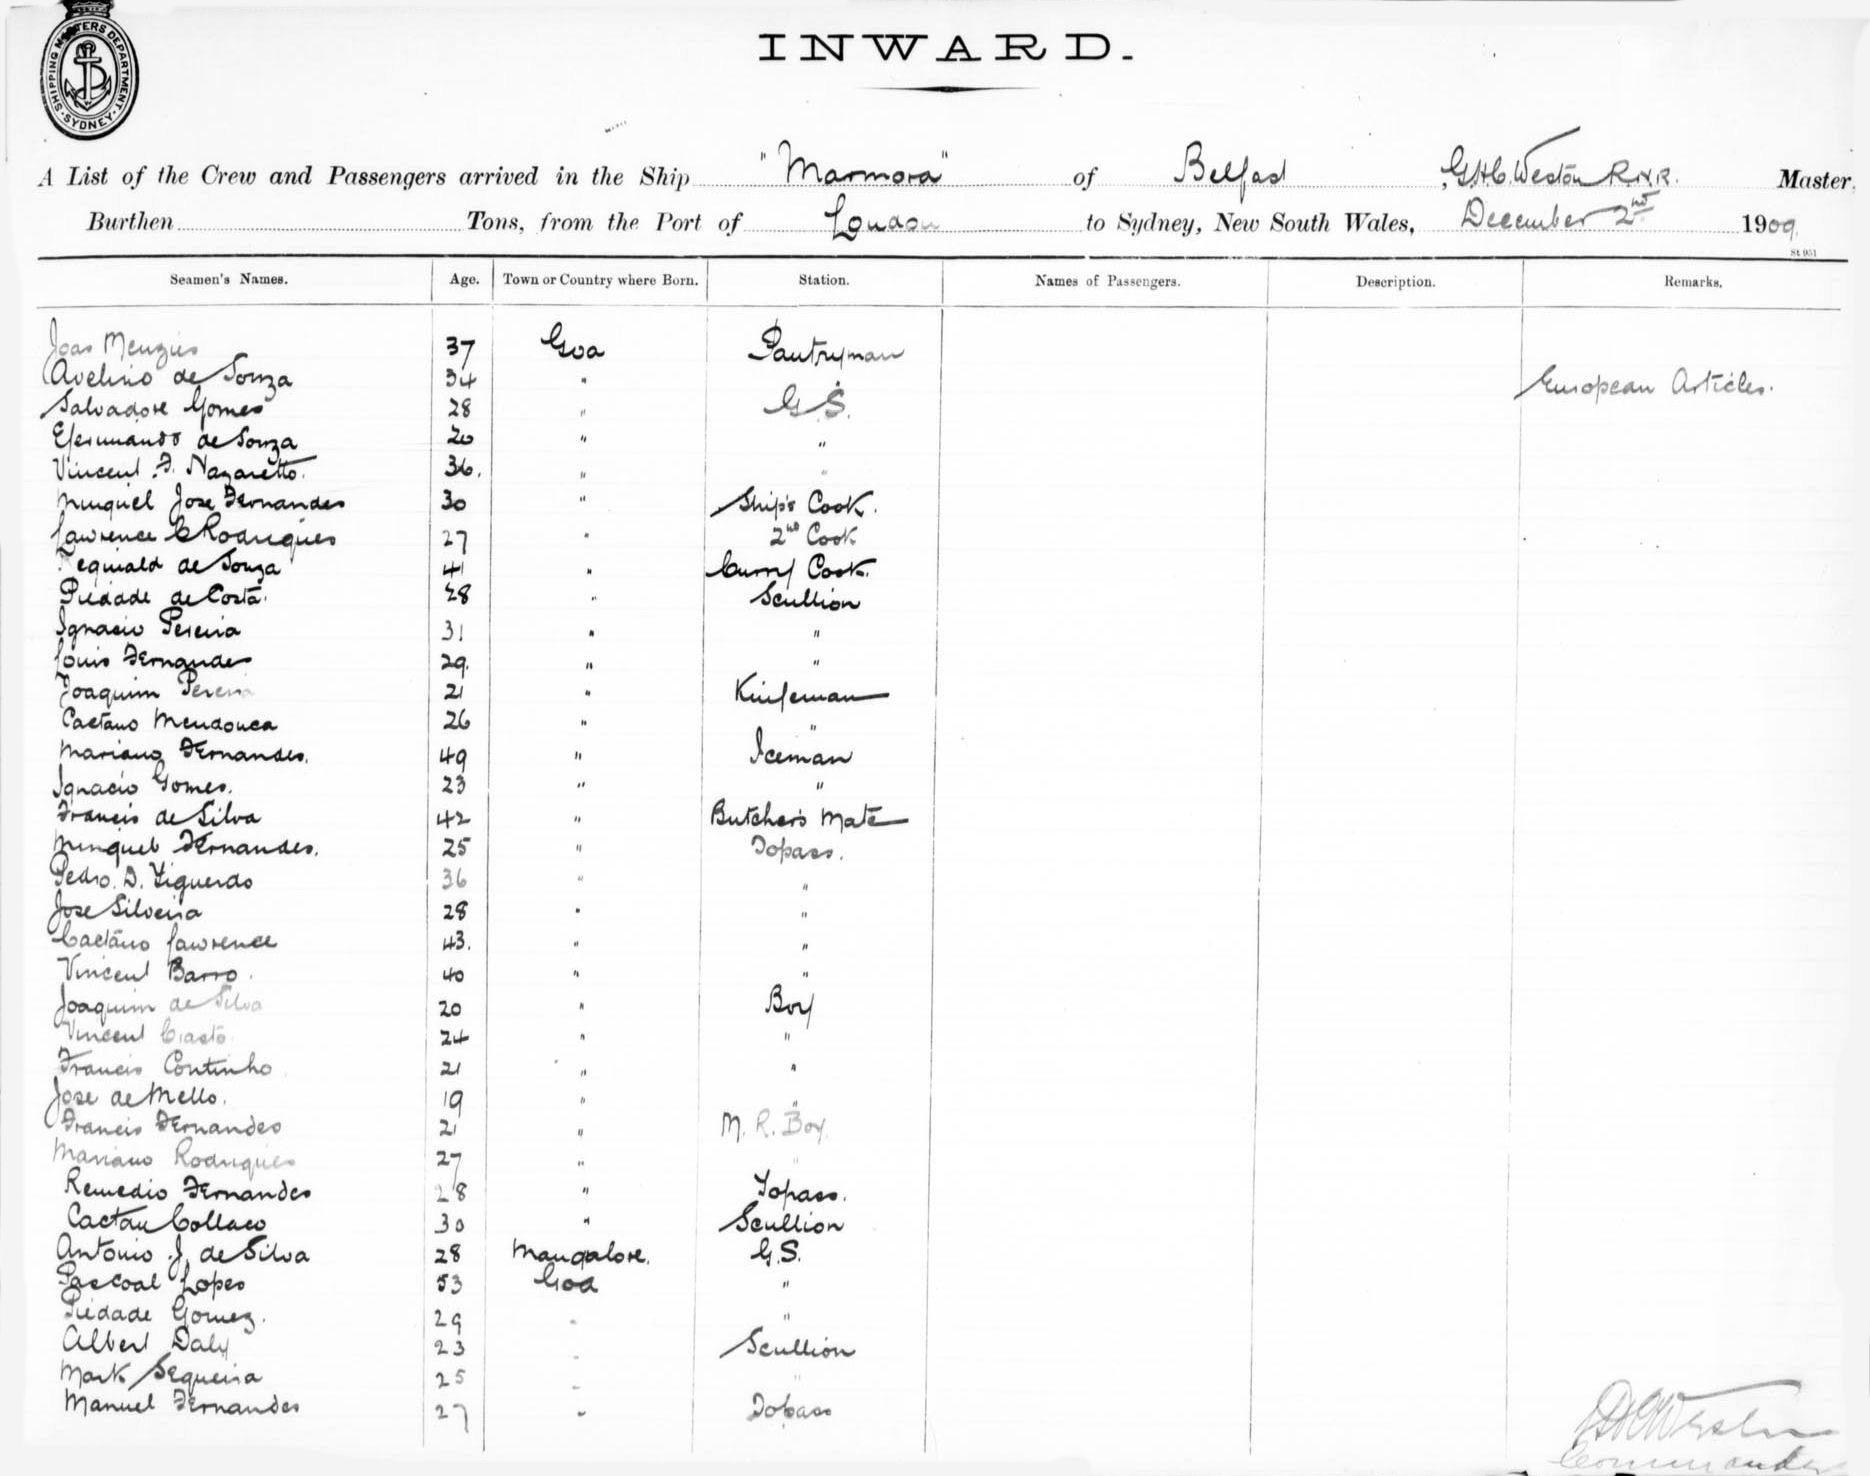 SHIPPING MASTERS DEPARTMENT. SYDNEY.
INWARD.
A List of the Crew and Passengers arrived in the Ship "Marmora" of Belfast G.H.C. Weston R.N.R. Master,
Burthen Tons, from the Port of London to Sydney, New South Wales, December 2nd 1909
St 951
Seamen's Names. Age. Town or Country where Born. Station. Names of Passengers. Description. Remarks.
Joao Menzies 37 Goa Pantryman
Avelino de Souza 34 " " European Articles.
Salvadore Gomes 28 " G.S.
de Souza 20 " "
Vincent F. Nazaretto. 36. " "
Minguel Jose Fernandes 30 " Ship's Cook.
Lawrence C Rodrigues 27 " 2nd Cook
Reginald de Souza 41 " Curry Cook.
Piedade de Costa. 28 " Scullion
Ignacio Pereira 31 " "
Louis Fernandes 29. " "
Joaquim Pereira 21 " Knifeman
Caetano Mendonca 26 " "
Mariano Fernandes. 49 " Iceman
Ignacio Gomes. 23 " "
Francis de Silva 42 " Butcher's Mate
Minguel Fernandes. 25 " Topass.
Pedro. D. Figuerdo 36 " "
Jose Silveira 28 " "
Caetano Lawrence 43. " "
Vincent Barro. 40 " "
Joaquim de Silva 20 " Boy
Vincent Crasto 24 " "
Francis Coutinho 21 " "
Jose de Mello. 19 " "
Francis Fernandes 21 " M. R. Boy.
Mariano Rodrigues 27 " "
Remedio Fernandes 28 " Topass.
Caetan Collaco 30 " Scullion
Antonio J. de Silva 28 Mangalore. G.S.
Pascoal Lopes 53 Goa "
Piedade Gomez. 29 " "
Albert Daly 23 " Scullion
Mark Sequeira 25 " "
Manuel Fernandes 27 " Topass
GHCWeston
Commander